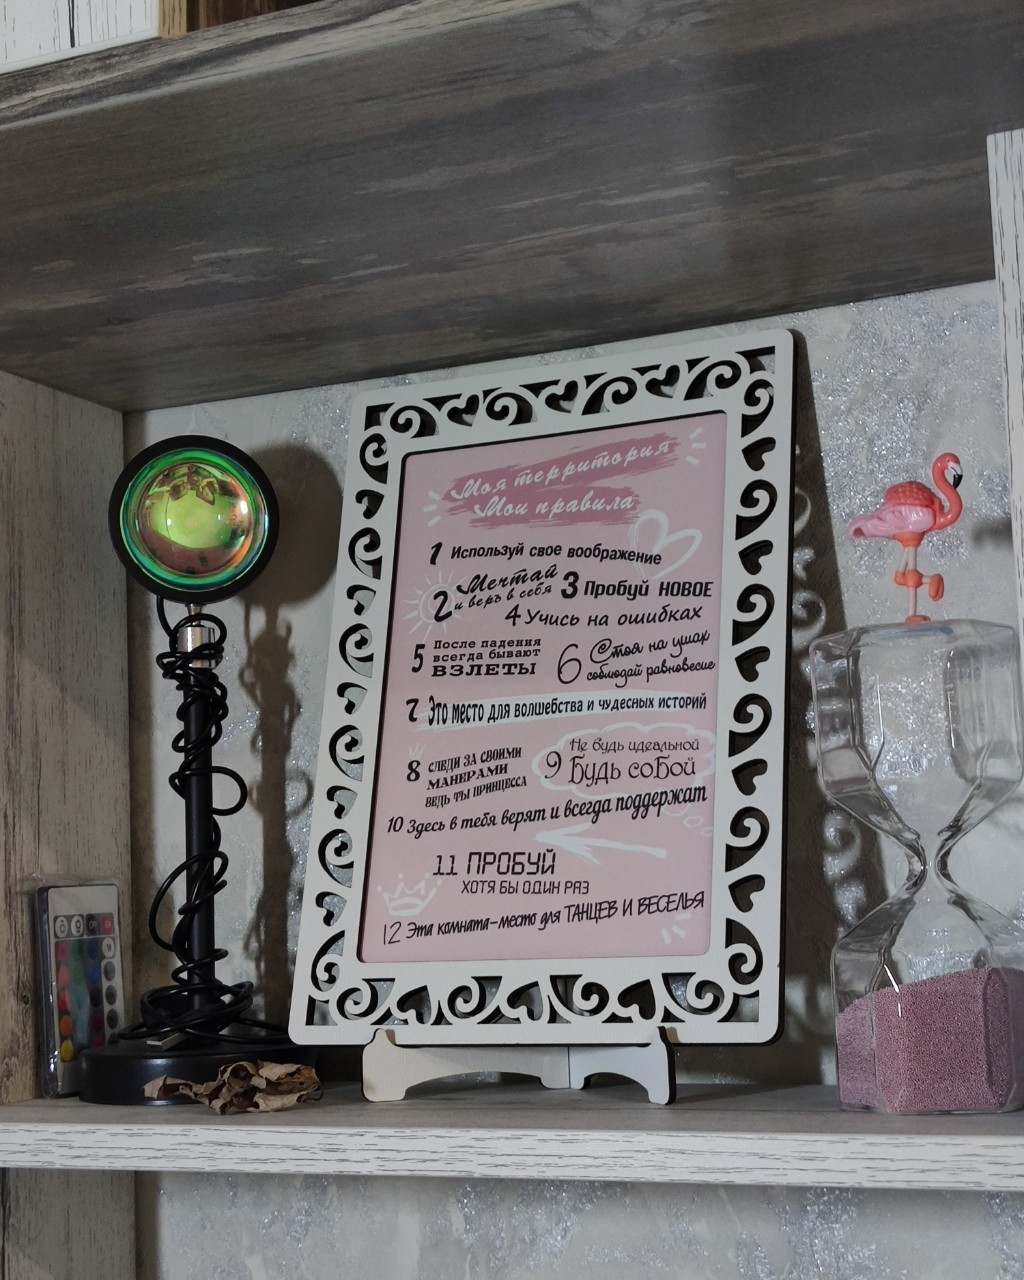 Моя территория
Мои правила
1 Используй свое воображение
2 Мечтай
и верь в себя
3 Пробуй НОВОЕ
4 Учись на ошибках
5 После падения
всегда бывают
ВЗЛЕТЫ
6 Стоя на ушах
соблюдай равновесие
7 Это место для волшебства и чудесных историй
8 СЛЕДИ ЗА СВОИМИ
МАНЕРАМИ
ВЕДЬ ТЫ ПРИНЦЕССА
9 Не будь идеальной
Будь собой
10 Здесь в тебя верят и всегда поддержат
11 ПРОБУЙ
ХОТЯ БЫ ОДИН РАЗ
12 Эта комната-место для ТАНЦЕВ И ВЕСЕЛЬЯ